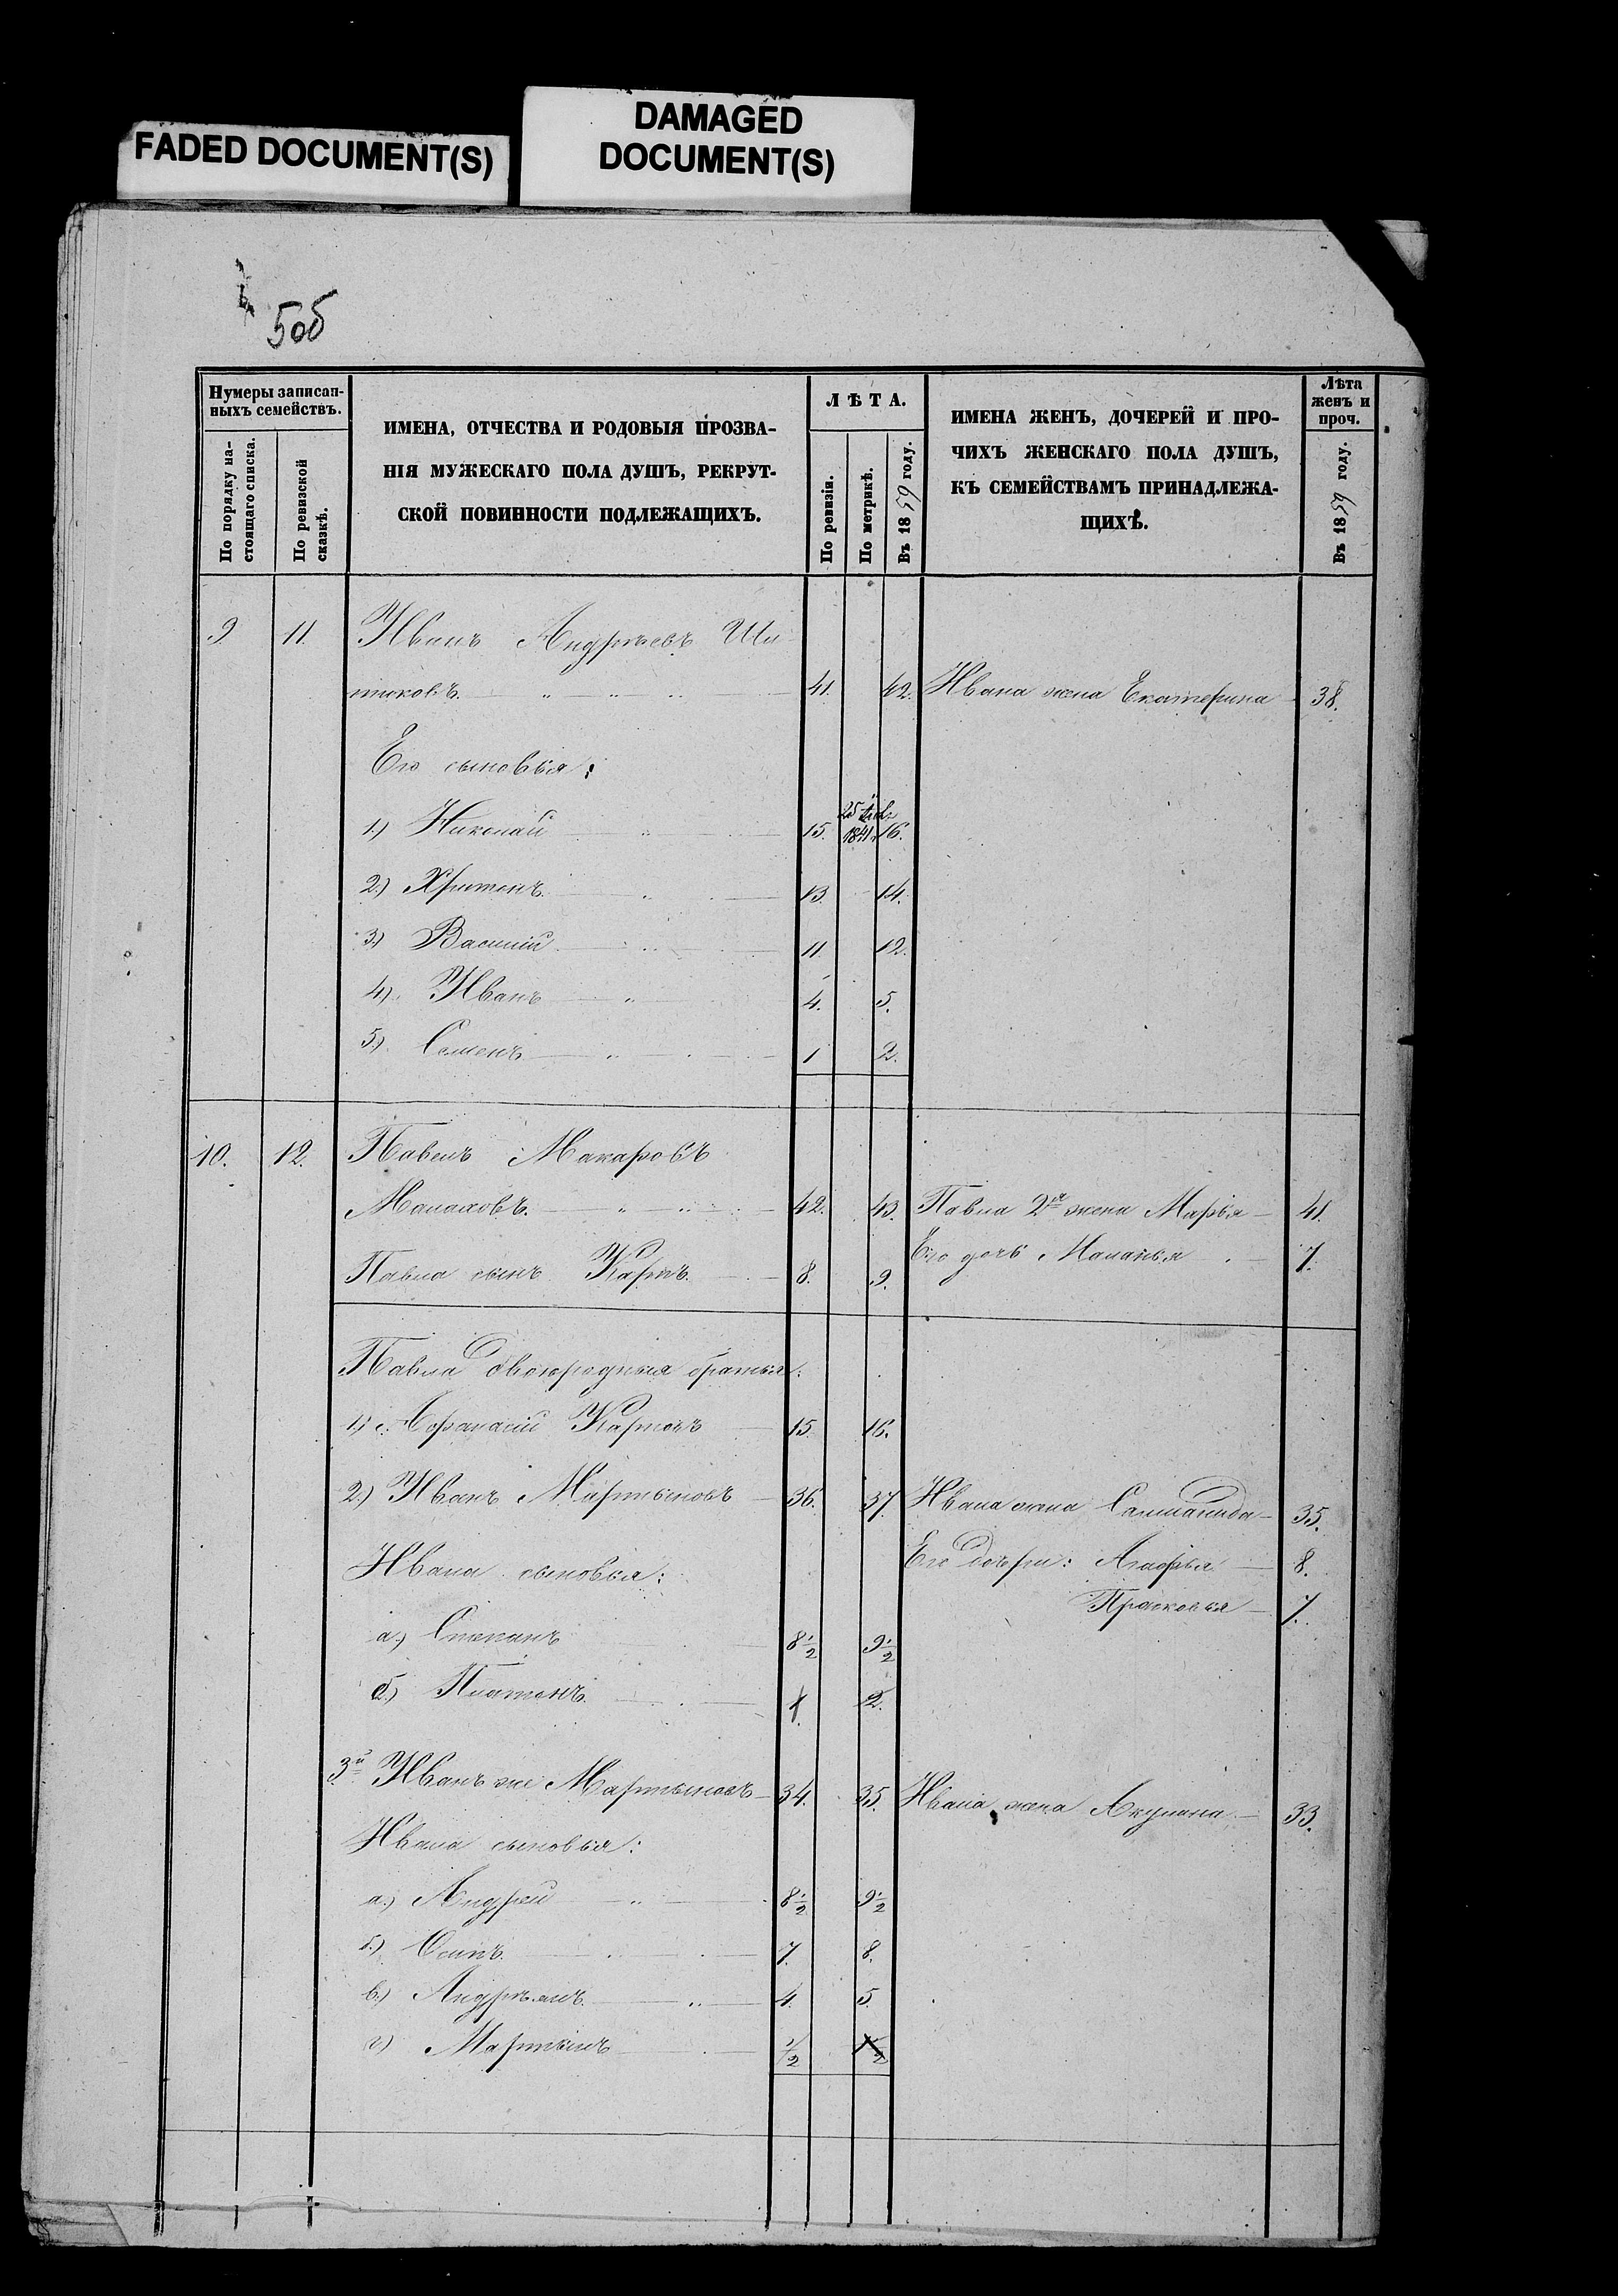 FADED DOCUMENT(S)
DAMAGED
DOCUMENT(S)
5об
Нумеры записан-
ныхъ семействъ.
По порядку на-
стоящаго списка.
По ревизской
сказкѣ.
ИМЕНА, ОТЧЕСТВА И РОДОВЫЯ ПРОЗВА-
НІЯ МУЖЕСКАГО ПОЛА ДУШЪ, РЕКРУТ-
СКОЙ ПОВИННОСТИ ПОДЛЕЖАЩИХЪ.
ЛѢТА.
По ревизіи.
По метрикѣ.
Въ 1859 году.
ИМЕНА ЖЕНЪ, ДОЧЕРЕЙ И ПРО-
ЧИХЪ ЖЕНСКАГО ПОЛА ДУШЪ,
КЪ СЕМЕЙСТВАМЪ ПРИНАДЛЕЖА-
ЩИХЪ.
Лѣта
женъ и
проч.
Въ 1859 году.
9 11. Иванъ Андреевъ Ши-
тиковъ. 41. 42. Ивана жена Екатерина 38.
Его сыновья:
1.) Николай 15. 1841 16.
2.) Харитонъ 13. 14.
3.) Василій 11 12.
4.) Иванъ 4. 5.
5.) Семенъ 1 2.
10. 12. Павелъ Макаровъ
Малаховъ. 42. 43. Павла 2я жена Марья 41.
Павла сынъ Карпъ. 8. 9. Его дочь Маланья 7.
Павла двоюродныя братья:
1) Афанасій Карповъ 15. 16.
2.) Иванъ Мартыновъ 36. 37. Ивана жена Саломанида 35.
Ивана сыновья: Его дочери: Агафья 8.
Прасковья 7.
а.) Степанъ 8½ 9½
б.) Платонъ. 1. 2.
3й Иванъ же Мартыновъ 34. 35. Ивана жена Акулина 33.
Ивана сыновья:
а.) Андрей 8½ 9½
б.) Осипъ. 7. 8.
в.) Андреянъ. 4. 5.
г.) Мартынъ ½ 1½